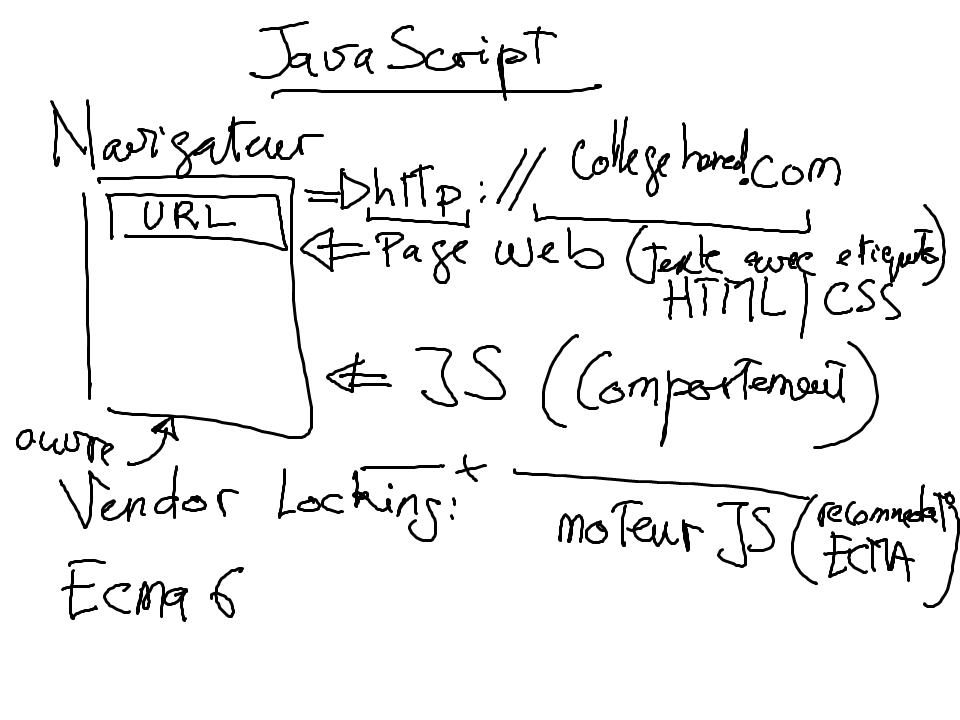 JavaScript
Navigateur
http://collegeboreal.com
URL
Page web (texte avec etiquets)
HTML / CSS
JS (Comportement)
ouvre
Vendor Locking:
+
moteur JS (recommedat°
ECMA)
Ecma 6